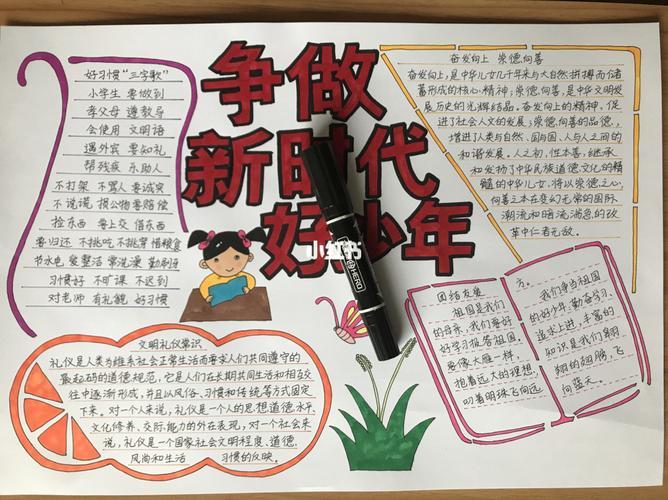 争做
新时代
好少年
好习惯"三字歌"
小学生 要做到
孝父母 遵教导
会使用 文明语
遇外宾 要知礼
帮残疾 乐助人
不打架 不骂人 要诚实
不说谎 损公物 要赔偿
捡东西 要上交 借东西
要归还 不挑吃 不挑穿 惜粮食
节水电 爱整洁 常洗澡 勤刷牙
习惯好 不旷课 不迟到
对老师 有礼貌 好习惯
奋发向上 崇德向善
奋发向上,是中华儿女几千年来与大自然拼搏而储
蓄形成的核心精神;崇德向善,是中华文明发
展历史的光辉结晶。奋发向上的精神,促
进了社会人文的发展;崇德向善的品德,
增进了人类与自然、国与国、人与人之间的
和谐发展。人之初,性本善,继承
和发扬了中华民族道德文化的精
髓的中华儿女,将以崇德之心,
向善之本在变幻无常的国际
潮流和暗流涌急的改
革中仁者无敌。
小红书
HERO
文明礼仪常识
礼仪是人类为维系社会正常生活而要求人们共同遵守的
最起码的道德规范,它是人们在长期共同生活和相互交
往中逐渐形成,并且以风俗、习惯和传统等方式固定
下来。对一个人来说,礼仪是一个人的思想道德水平、
文化修养、交际能力的外在表现,对一个社会来
说,礼仪是一个国家社会文明程度、道德
风尚和生活 习惯的反映。
团结友爱
祖国是我们
的母亲,我们要好
好学习报答祖国。
要像大雁一样,
抱着远大的理想,
叼着明珠飞向远
方。
我们争当祖国
的好少年,勤奋学习、
追求上进,丰富的
知识是我们翱
翔的翅膀,飞
向蓝天。